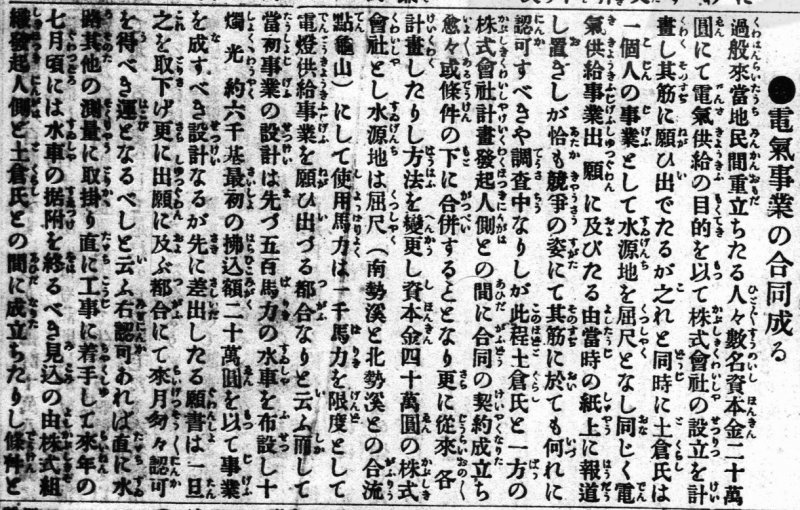 ●電氣事業の合同成る
過般來當地民間重立ちたる人々數名資本金二十萬
圓にて電氣供給の目的を以て株式會社の設立を計
畫し其筋に願ひ出でたるが之れと同時に土倉氏は
一個人の事業として水源地を屈尺となし同じく電
氣供給事業出願に及びたる由當時の紙上に報道
し置きしが恰も競爭の姿にて其筋に於ても何れに
認可すべきや調査中なりしが此程土倉氏と一方の
株式會社計畫發起人側との間に合同の契約成立ち
愈々或條件の下に合併することとなり更に從來各
計畫したりし方法を變更し資本金四十萬圓の株式
會社とし水源地は屈尺(南勢溪と北勢溪との合流
點龜山)にして使用馬力は一千馬力を限度として
電燈供給事業を願ひ出づる都合なりと云ふ而して
當初事業の設計は先づ五百馬力の水車を布設し十
燭光約六千基最初の拂込額二十萬圓を以て事業
を成すべき設計なるが先に差出したる願書は一旦
之を取下げ更に出願に及ぶ都合にて來月匆々認可
を得べき運となるべしと云ふ右認可あれば直に水
路其他の測量に取掛り直に工事に着手して來年の
七月頃には水車の据附を終るべき見込の由株式組
織發起人側と土倉氏との間に成立ちたりし條件と